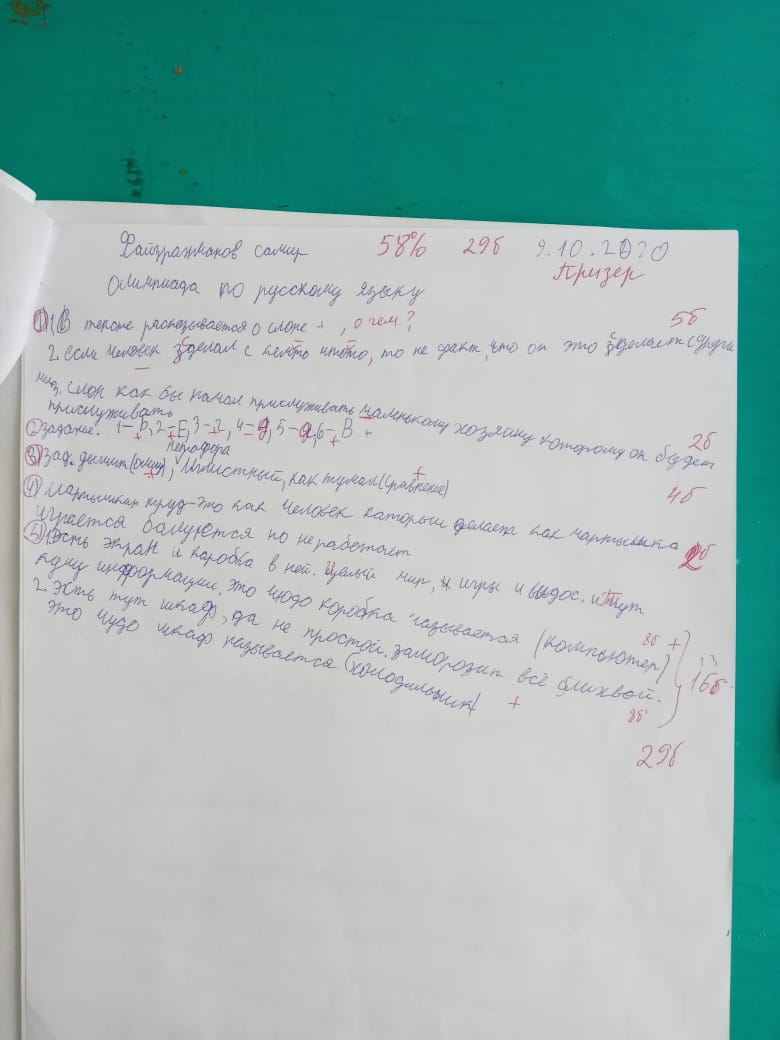 Файзрахманов самир 58% 29б 9.10.2020
Призер
Олимпиада по русскому языку
5б
① 1 В тексте расказывается о слоне + , о чем?
2. если человек зделал с кемто чтото, то не факт, что он это зделает с други
ми 3. слон как бы начал прислуживать маленькому хозяину которому он будет
прислуживать 2б
② задание. 1-Б, 2-Е, 3-2, 4-д, 5-а, 6-В +
метафора
③ зад. дымит , как туман (сравнение) + 4б
④ мартышкин труд - это как человек каторый делает как мартышка
играется балуется но неработает 2б
⑤ 1 Эсть экран и каробка в ней. Целый мир, и игры и видос. ищут
одну информации. это чюдо коробка называется (компьютер) 8б +
2. Эсть тут шкаф, да не простой. заморозит всё
это чудо шкаф называется (холодильник) + 8б
16б
29б